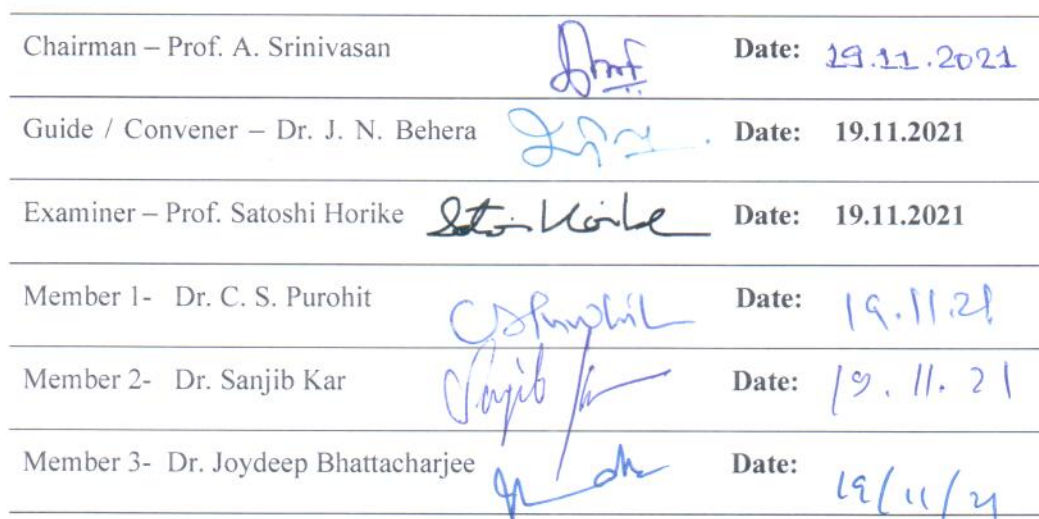 Chairman – Prof. A. Srinivasan Date: 19.11.2021
Guide / Convener – Dr. J. N. Behera Date: 19.11.2021
Examiner – Prof. Satoshi Horike Satoshi Horike Date: 19.11.2021
Member 1- Dr. C. S. Purohit CSPurohit Date: 19.11.21
Member 2- Dr. Sanjib Kar Sanjib Kar Date: 19.11.21
Member 3- Dr. Joydeep Bhattacharjee Date: 19/11/21